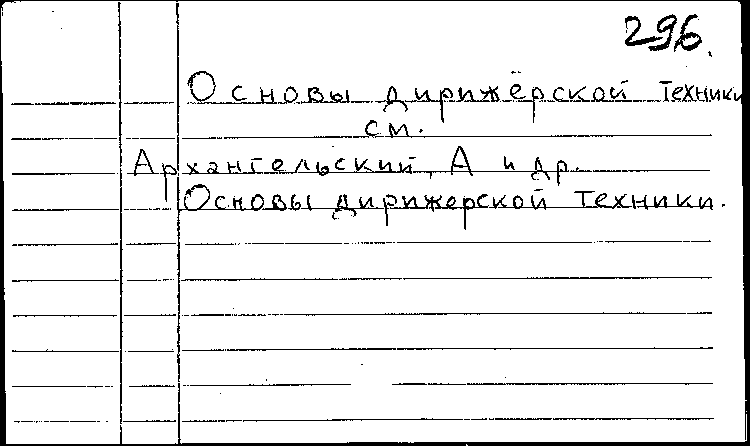 296.
Основы дирижёрской техники
см.
Архангельский, А и др.
Основы дирижерской техники.